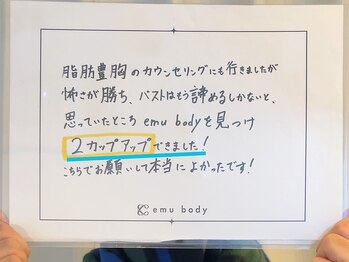 脂肪豊胸のカウンセリングにも行きましたが
怖さが勝ち、バストはもう諦めるしかないと、
思っていたところ emu bodyを見つけ
2カップアップできました!
こちらでお願いして本当によかったです!
emu body